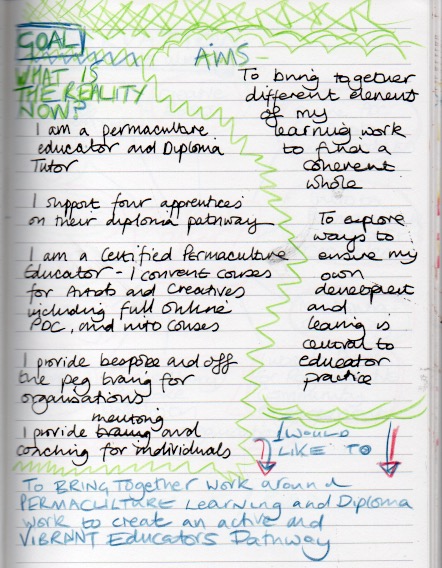 GOAL
WHAT IS
THE REALITY
NOW?
I am a permaculture
educator and Diploma
Tutor
I support four apprentices
on their diploma pathway
I am a Certified Permaculture
Educator - I convent courses
for Artists and Creatives
including full online
PDC, and intro courses
I provide bespoke and off
the peg traing for
organisations
mentoring
I provide traing and
coaching for individuals
AiMS -
To bring together
different element
of my
learning work
to find a
coherent
whole
To explore
ways to
ensure my
own
development
and
learning is
central to
educator
practice
I WOULD
LIKE TO
To BRING Together work around
PERMACULTURE Learning and Diploma
work to create an active and
VIBRANT Educators Pathway